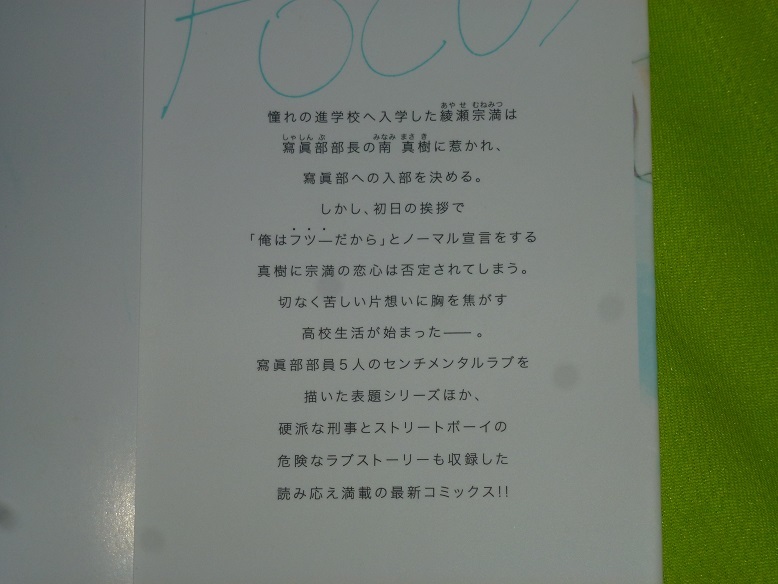 FOCUS
憧れの進学校へ入学した綾瀬宗満は
寫眞部部長の南 真樹に惹かれ、
寫眞部への入部を決める。
しかし、初日の挨拶で
「俺はフツーだから」とノーマル宣言をする
真樹に宗満の恋心は否定されてしまう。
切なく苦しい片想いに胸を焦がす
高校生活が始まった——。
寫眞部部員5人のセンチメンタルラブを
描いた表題シリーズほか、
硬派な刑事とストリートボーイの
危険なラブストーリーも収録した
読み応え満載の最新コミックス!!